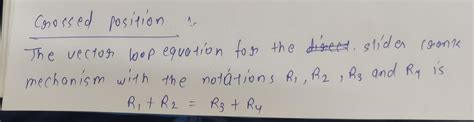 Crossed position :
The vector loop equation for the direct. slider crank
mechanism with the notations R1, R2, R3 and R4 is
R1 + R2 = R3 + R4